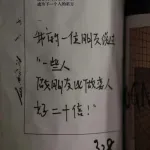 我的一位朋友说过
“一些人
做朋友比做亲人
好二十倍！”
328